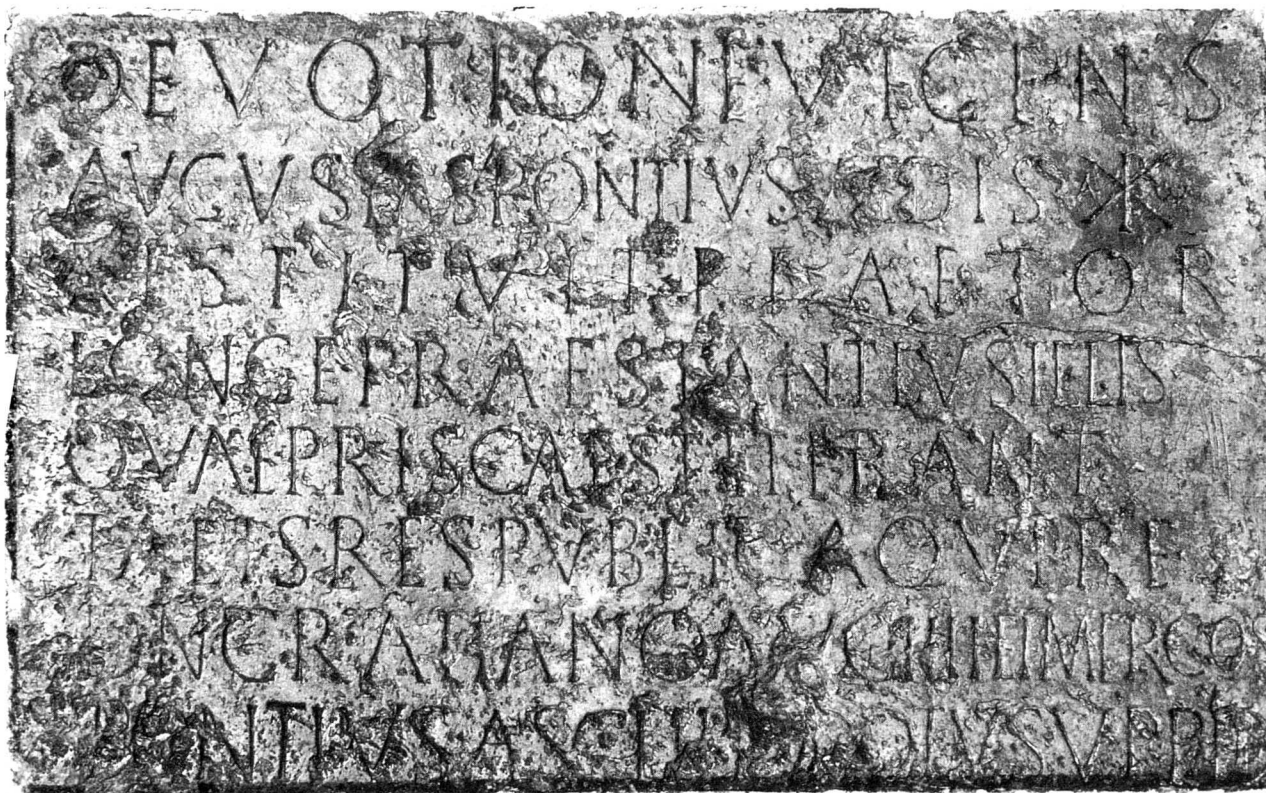 DEVOTIONE VIGENS
AVGVSTAS PONTIVS AEDIS ☧
RESTITVIT PRAETOR
LONGE PRAESTANTIVS ILLIS
QVAE PRISCAE STETERANT
TALIS RESPVBLICA QVERE
DN GRATIANO AVG IIII ET MER COS
PONTIVS ASCLEPIODOTVS V P P D